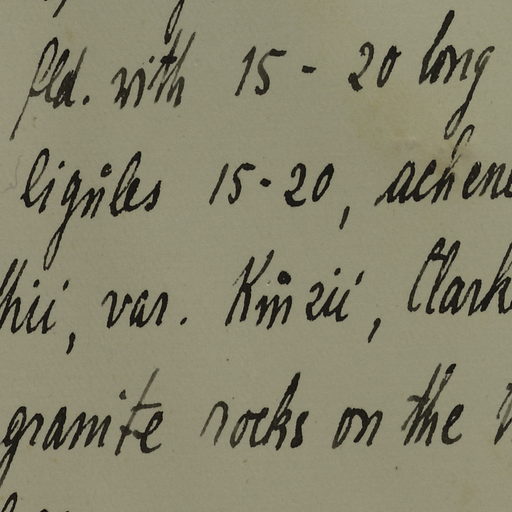 fld. with 15 - 20 long
ligůles 15-20, achene
hii, var. Kůnzii, Clark
granite rocks on the